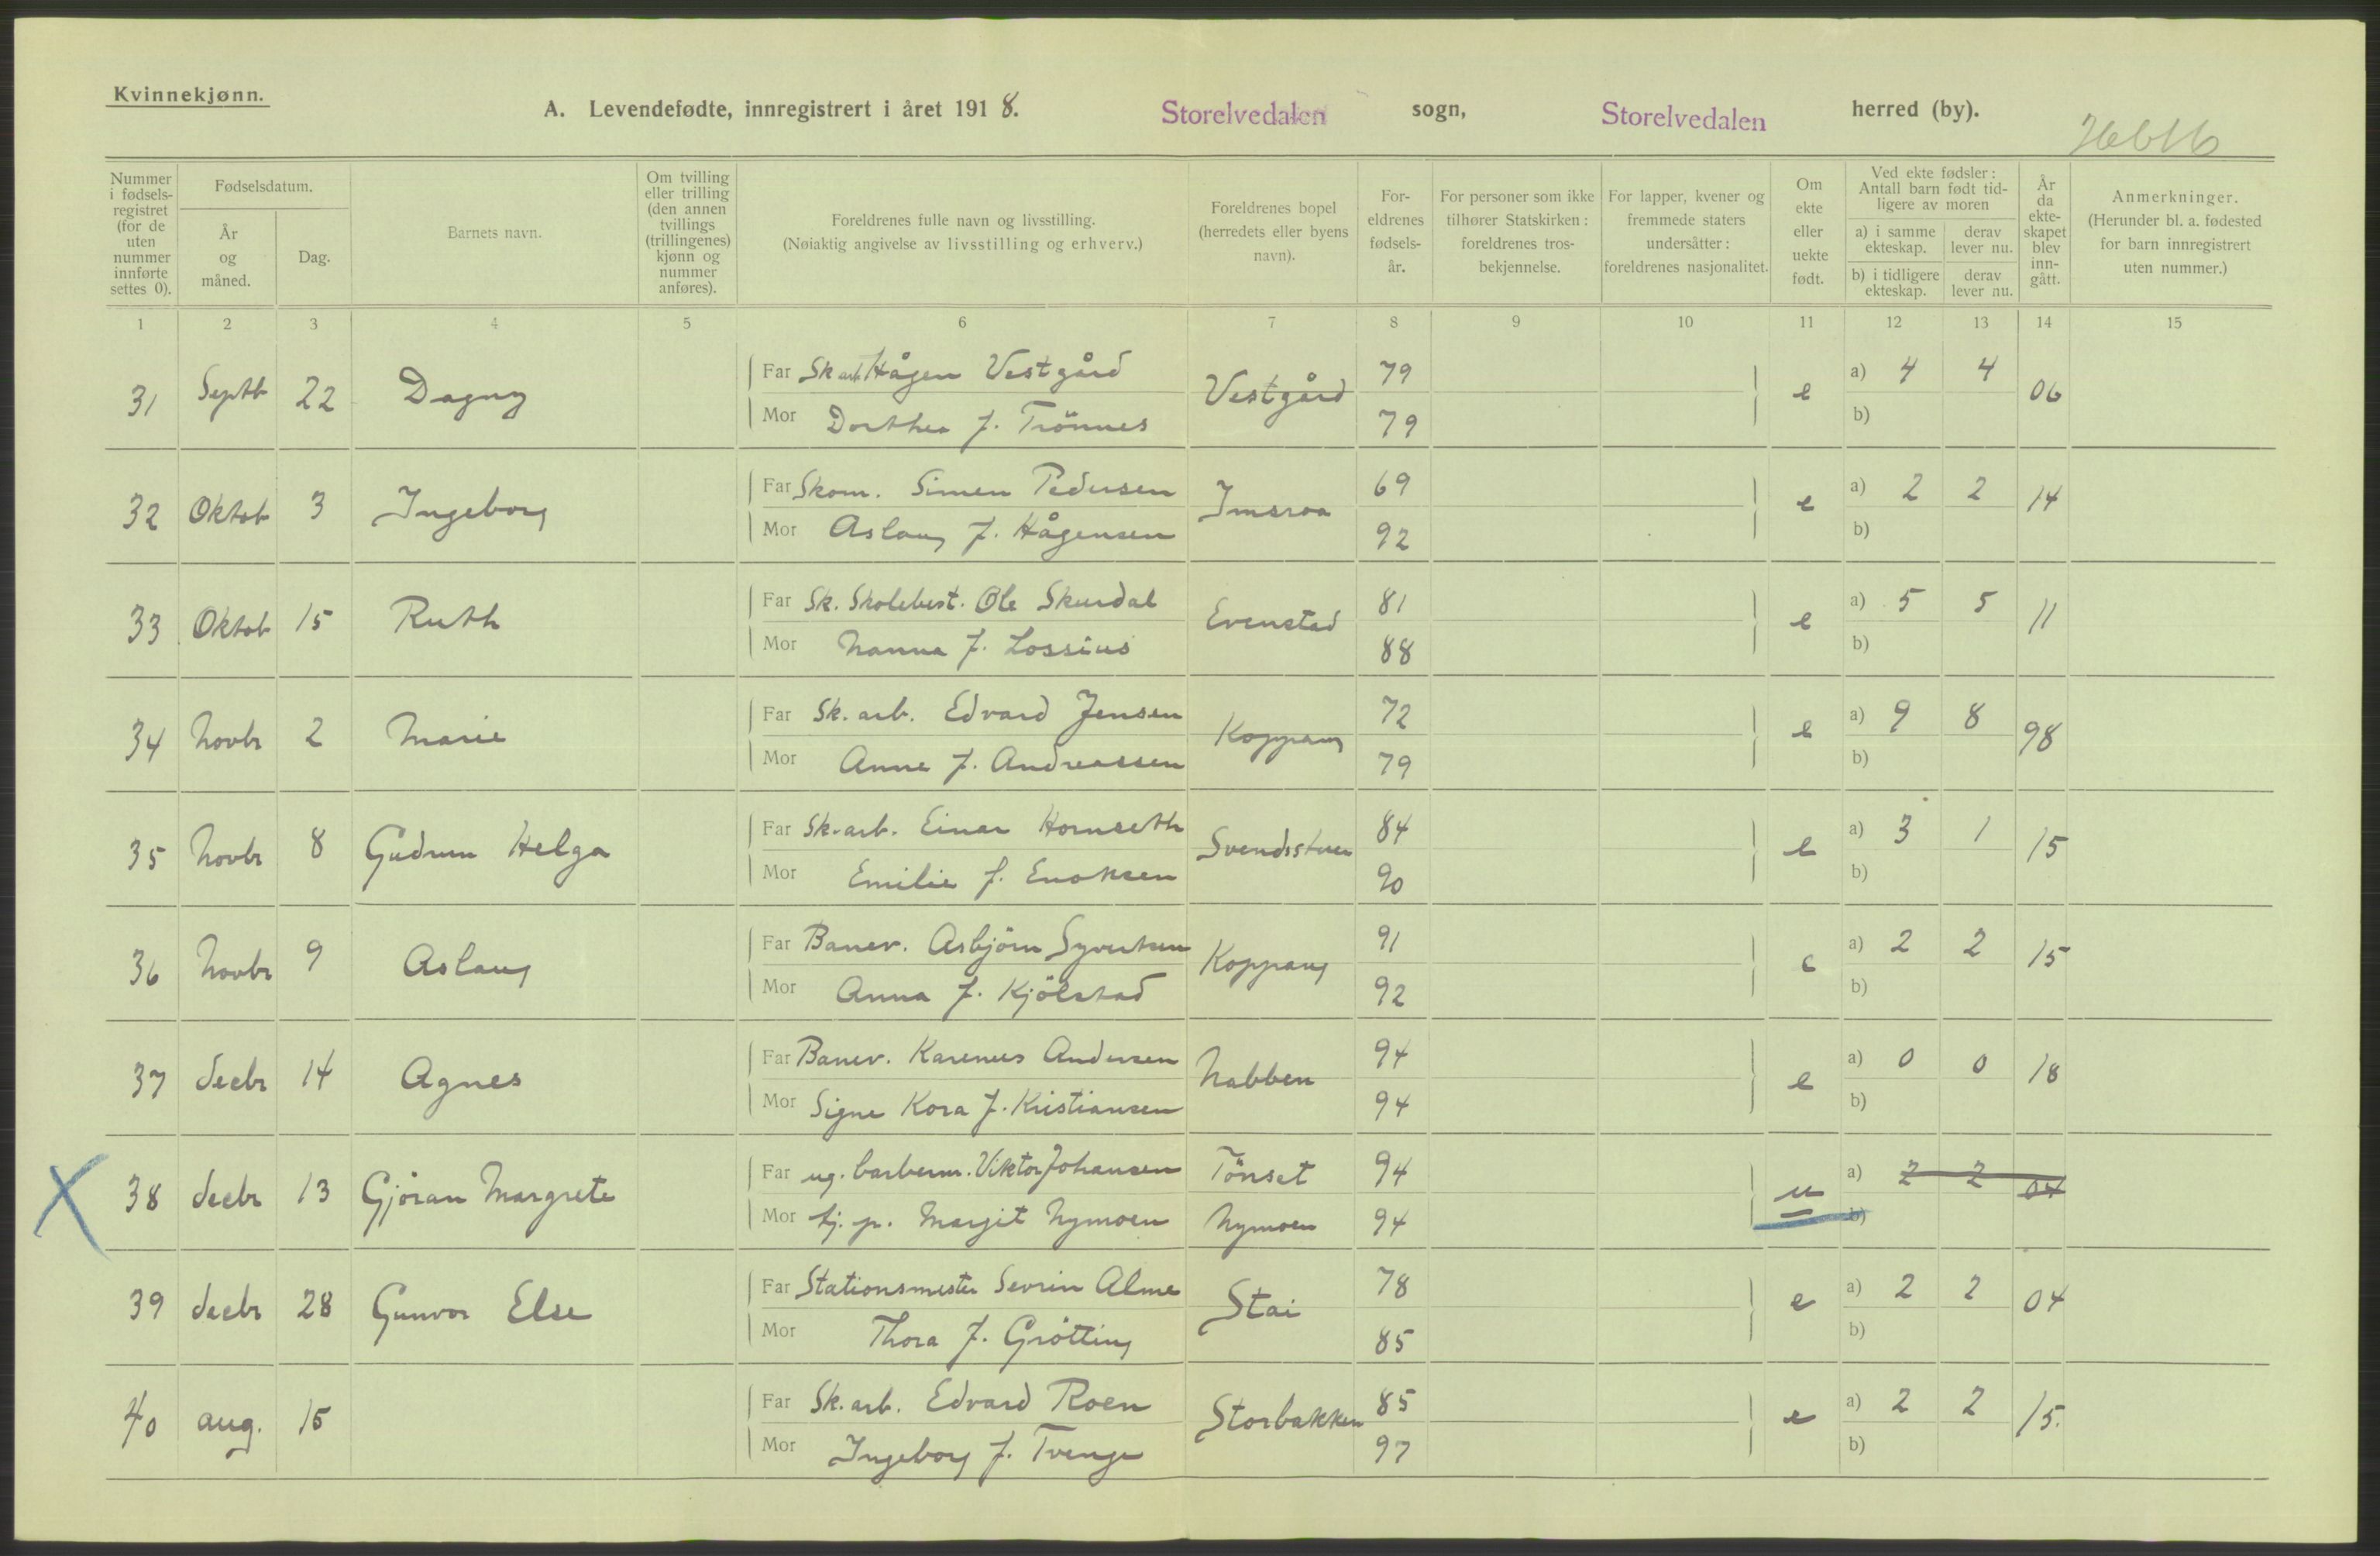 Kvinnekjønn.
A. Levendefødte, innregistrert i året 1918. Storelvedalen sogn, Storelvedalen herred (by).
Nummer i fødsels-registret (for de uten nummer innførte settes 0).
Fødselsdatum.
År og måned.
Dag.
Barnets navn.
Om tvilling eller trilling (den annen tvillings (trillingenes) kjønn og nummer anføres).
Foreldrenes fulle navn og livsstilling.
(Nøiaktig angivelse av livsstilling og erhverv.)
Foreldrenes bopel (herredets eller byens navn).
For-eldrenes fødsels-år.
For personer som ikke tilhører Statskirken: foreldrenes tros-bekjennelse.
For lapper, kvener og fremmede staters undersåtter: foreldrenes nasjonalitet.
Om ekte eller uekte født.
Ved ekte fødsler: Antall barn født tid-ligere av moren
a) i samme ekteskap. derav lever nu.
b) i tidligere ekteskap. derav lever nu.
År da ekte-skapet blev inn-gått.
Anmerkninger.
(Herunder bl. a. fødested for barn innregistrert uten nummer.)
1 2 3 4 5 6 7 8 9 10 11 12 13 14 15
31 Septb 22 Dagny Far Sk arb Hågen Vestgård Vestgård 79 e a) 4 4 06
Mor Dorthea f. Trönnes 79 b)
32 Oktob 3 Ingeborg Far Skom. Simen Pedersen Imsroa 69 e a) 2 2 14
Mor Aslaug f. Hågensen 92 b)
33 Oktob 15 Ruth Far Sk. Skolebest. Ole Skurdal Evenstad 81 e a) 5 5 11
Mor Nanna f. Lossius 88 b)
34 Novbr 2 Marie Far Sk. arb. Edvard Jensen Koppang 72 e a) 9 8 98
Mor Anne f. Andreassen 79 b)
35 Novbr 8 Gudrun Helga Far Sk. arb. Einar Hornseth Svendsstuen 84 e a) 3 1 15
Mor Emilie f. Enoksen 90 b)
36 Novbr 9 Aslaug Far Banev. Asbjörn Syvertsen Koppang 91 e a) 2 2 15
Mor Anna f. Kjölstad 92 b)
37 decbr 14 Agnes Far Banev. Karenus Andersen Nabben 94 e a) 0 0 18
Mor Signe Kora f. Kristiansen 94 b)
38 decbr 13 Gjöran Margrete Far ug. barberm. Viktor Johansen Tönset 94 u a) 2 2 04
Mor tj. p. Margit Nymoen Nymoen 94 b)
39 decbr 28 Gunvor Else Far Stationsmester Sevrin Alme Stai 78 e a) 2 2 04
Mor Thora f. Grötting 85 b)
40 aug. 15 Far Sk. arb. Edvard Roen Storbakken 85 e a) 2 2 15.
Mor Ingeborg f. Tvenge 97 b)